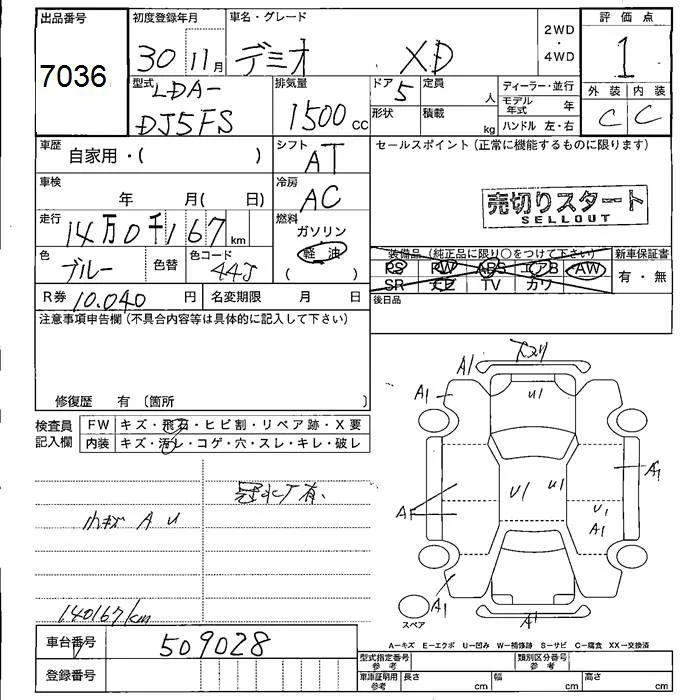 出品番号
7036
初度登録年月
30 11月
車名・グレード
デミオ XD
2WD
・
4WD
評価点
1
外装 内装
C C
型式
LDA-
DJ5FS
排気量
1500 cc
ドア 5
定員
人
形状
積載
kg
ディーラー・並行
モデル年式 年
ハンドル 左・右
車歴
自家用・( )
シフト
AT
セールスポイント (正常に機能するものに限ります)
売切りスタート
SELLOUT
車検
年 月( 日)
冷房
AC
走行
14万0千167km
燃料
ガソリン
軽油
( )
色
ブルー
色替
色コード
44J
装備品 (純正品に限り○をつけて下さい)
PS PW ABS エアB AW
SR ナビ TV カワ
新車保証書
有・無
後日品
R券 10,040円
名変期限 月 日
注意事項申告欄 (不具合内容等は具体的に記入して下さい)
修復歴 有 〔箇所 〕
検査員
記入欄
FW キズ・飛石・ヒビ割・リペア跡・X要
内装 キズ・汚レ・コゲ・穴・スレ・キレ・破レ
冠水厂有、
小キズ A U
140167km
A1
A1
U1
U1
U1
A1
A1
U1
A1
A1
A1
スペア
A=キズ E=エクボ U=凹み W=補修跡 S=サビ C=腐食 XX=交換済
車台番号
509028
登録番号
型式指定番号
参考
類別区分番号
参考
車庫証明用
参考
長さ cm
幅 cm
高さ cm